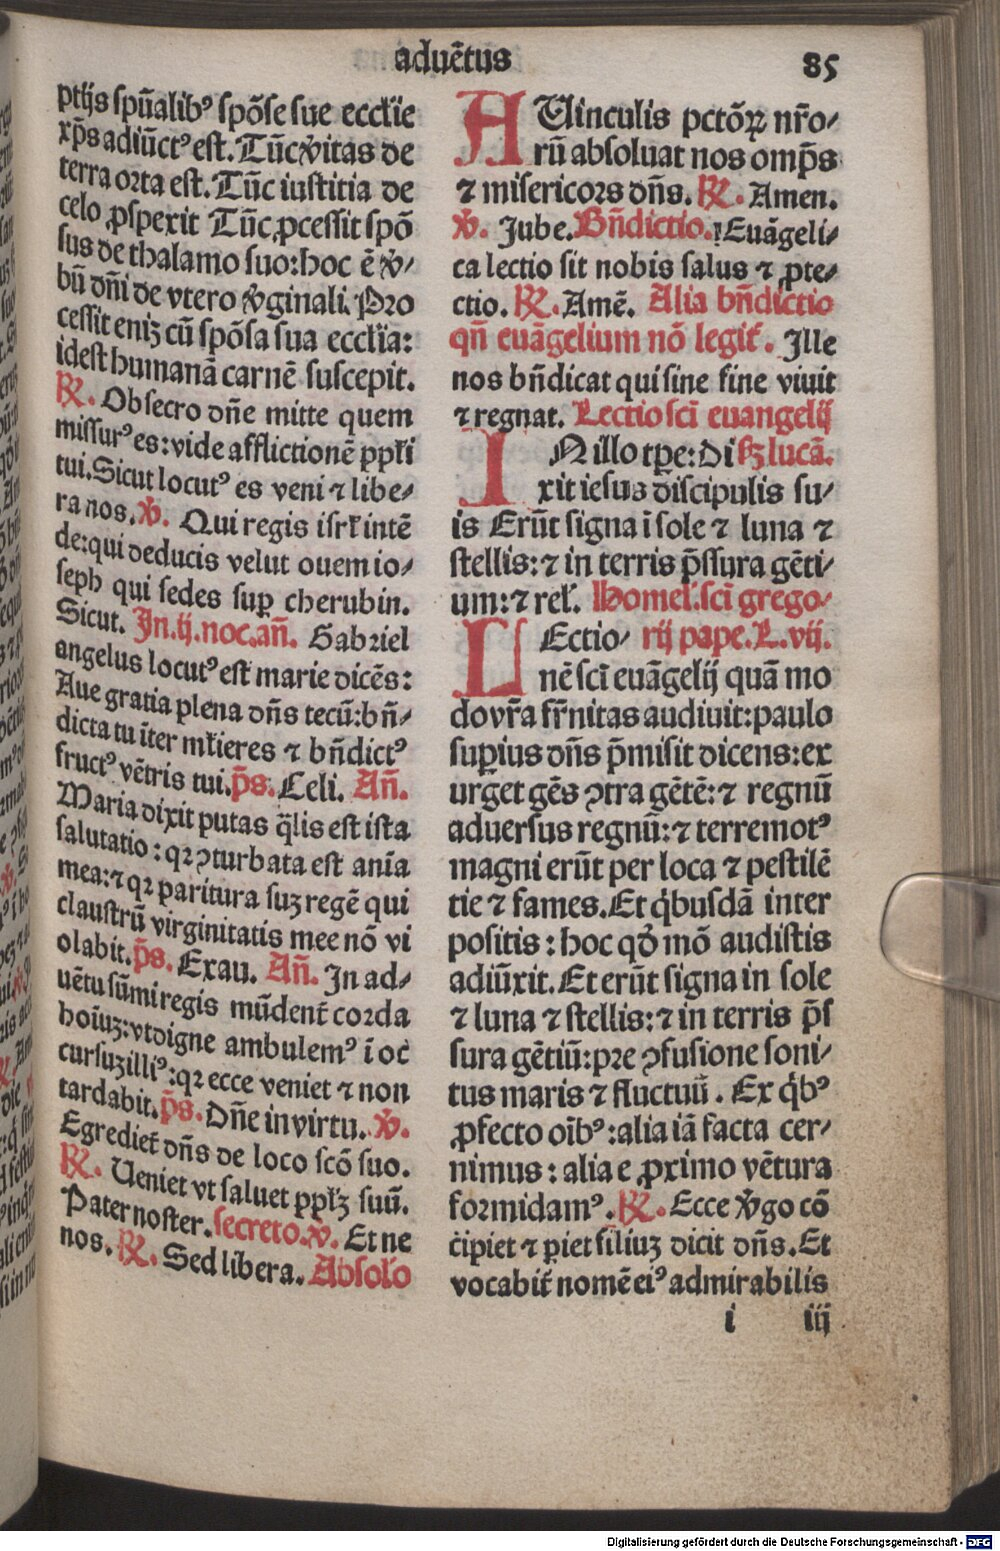 aduētus
85
ptijs spūalibꝰ spōse sue eccłie
xp̄s adiūctꝰ est. Tūc v̾itas de
terra orta est. Tūc iustitia de
celo ꝓspexit Tūc ꝓcessit spō
sus de thalamo suo: hoc ē v̾/
bū dn̄i de vtero v̾ginali. Pro
cessit eniꝫ cū spōsa sua eccłia:
idest humanā carnē suscepit.
℟. Obsecro dn̄e mitte quem
missurꝰ es: vide afflictionē ppłi
tui. Sicut locutꝰ es veni ⁊ libe/
ra nos. ℣. Qui regis isrł intē
de: qui deducis velut ouem io/
seph qui sedes suꝑ cherubin.
Sicut. In .ij. noc. an̄. Gabriel
angelus locutꝰ est marie dicēs:
Aue gratia plena dn̄s tecū: bn̄/
dicta tu īter młieres ⁊ bn̄dictꝰ
fructꝰ vētris tui. p̄s. Celi. An̄.
Maria dixit putas q̄lis est ista
salutatio: qꝛ ꝯturbata est anīa
mea: ⁊ qꝛ paritura suꝫ regē qui
claustrū virginitatis mee nō vi
olabit. p̄s. Exau. An̄. In ad/
uētu sūmi regis mūdent᷑ corda
hoīuꝫ: vt digne ambulemꝰ ī oc̄
cursuꝫ illiꝰ: qꝛ ecce veniet ⁊ non
tardabit. p̄s. Dn̄e in virtu. ℣.
Egrediet᷑ dn̄s de loco scō suo.
℟. Ueniet vt saluet ppłꝫ suū.
Pater noster. secreto. ℣. Et ne
nos. ℟. Sed libera. Absolo
A Uinculis pctōꝝ nr̄o/
rū absoluat nos omp̄s
⁊ misericors dn̄s. ℟. Amen.
℣. Jube. Bn̄dictio. Euāgeli/
ca lectio sit nobis salus ⁊ ꝓte/
ctio. ℟. Amē. Alia bn̄dictio
qn̄ euāgelium nō legit᷑. Ille
nos bn̄dicat qui sine fine viuit
⁊ regnat. Lectio scī euangelij
IN illo tꝑe: di sꝫ lucā.
xit iesus discipulis su/
is Erūt signa ī sole ⁊ luna ⁊
stellis: ⁊ in terris p̄ssura gēti/
um: ⁊ reł. Homeł. scī grego/
LEctio/ rij pape. L. vij.
nē scī euāgelij quā mo
do vr̄a fr̄nitas audiuit: paulo
suꝑius dn̄s p̄misit dicens: ex
urget gēs ꝯtra gētē: ⁊ regnū
aduersus regnū: ⁊ terremotꝰ
magni erūt per loca ⁊ pestilē
tie ⁊ fames. Et q̇busdā inter
positis: hoc qd̾ mō audistis
adiūxit. Et erūt signa in sole
⁊ luna ⁊ stellis: ⁊ in terris p̄s
sura gētiū: pre ꝯfusione soni/
tus maris ⁊ fluctuū. Ex q̇bꝰ
ꝓfecto oībꝰ: alia iā facta cer/
nimus: alia e ꝓximo vētura
formidamꝰ. ℟. Ecce v̾go cō
cipiet ⁊ ꝑiet filiuꝫ dicit dn̄s. Et
vocabit᷑ nomē eiꝰ admirabilis
i iij
Digitalisierung gefördert durch die Deutsche Forschungsgemeinschaft - DFG